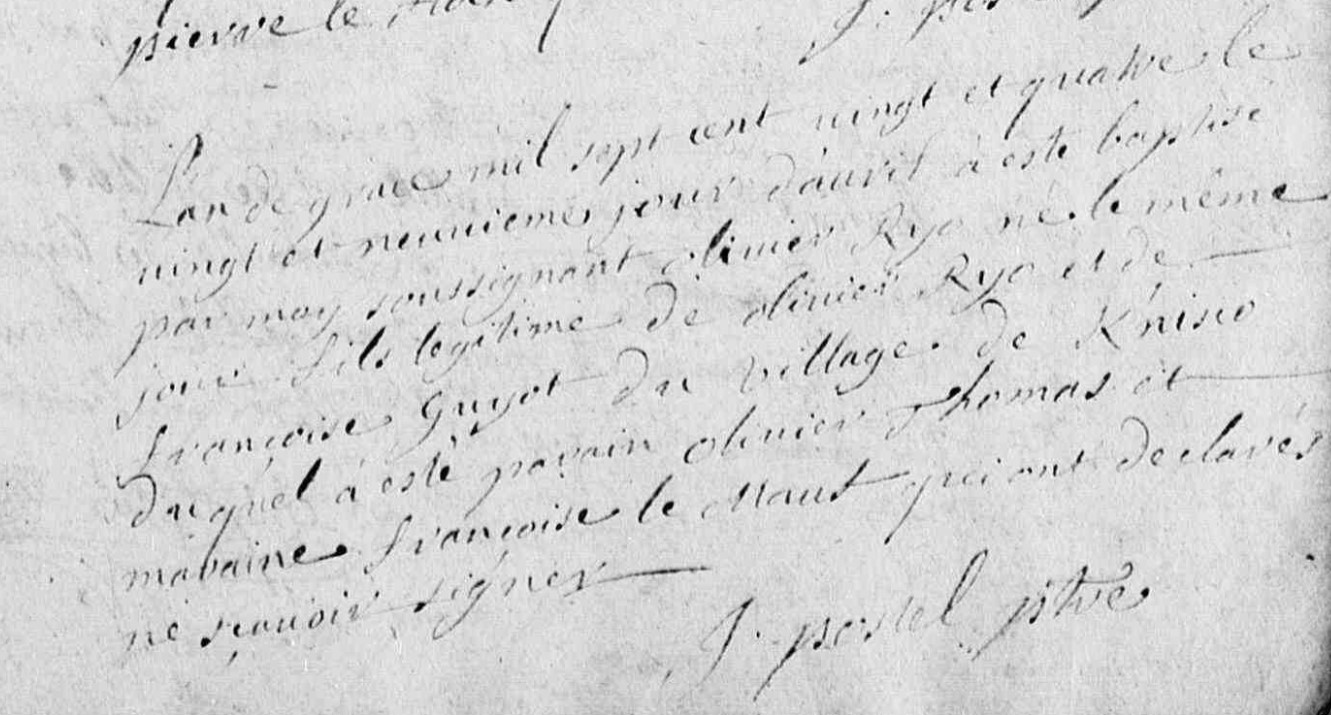 pierre le
J.
Lan de grace mil sept cent vingt et quatre le
vingt et neuuieme jour dàuril à este baptisé
par moy soussignant oliuier Ryo né le même
jour fils legitime de oliuier Ryo et de
françoise Guyot du village de K/nisio
du quel à esté parain oliuier Thomas et
maraine françoise le Maut qui ont declarés
ne sçauoir signer
J. postel ptre